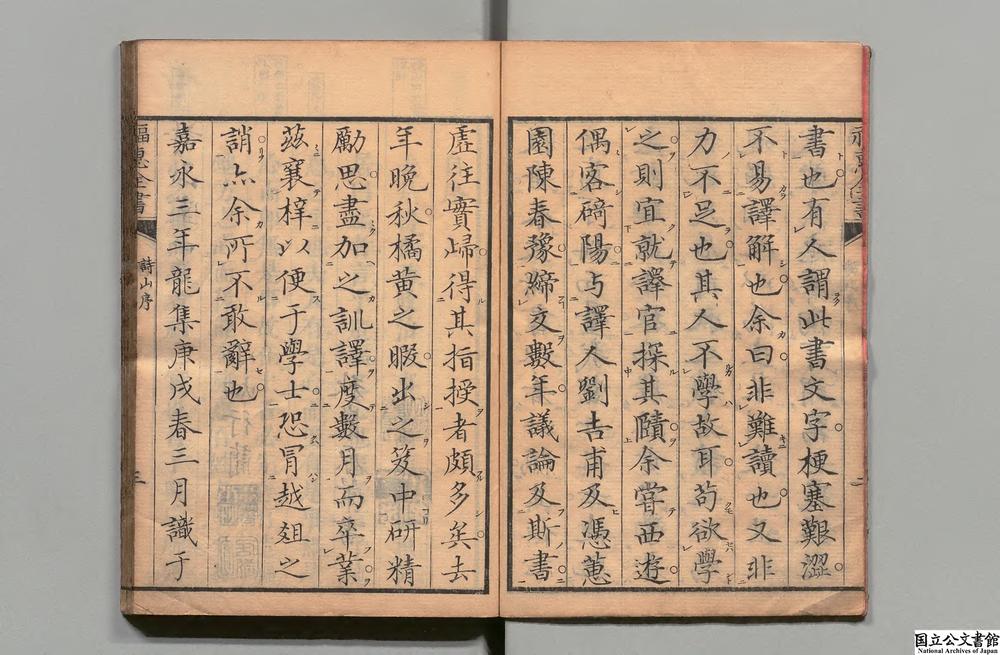 書也有人謂此書文字梗塞艱澀
不易譯解也余曰非難讀也又非
力不足也其人不學故耳苟欲學
之則宜就譯官探其賾余嘗西遊
偶客碕陽与譯人劉吉甫及馮蕙
園陳春豫締交數年議論及斯書
虛往實歸得其指授者頗多矣去
年晚秋橘黃之暇出之笈中研精
勵思盡加之訓譯度數月而卒業
茲襄梓以便于學士恐冒越爼之
誚亦余所不敢辭也
嘉永三年龍集庚戌春三月識于
福惠全書
詩山序
三
国立公文書館
National Archives of Japan